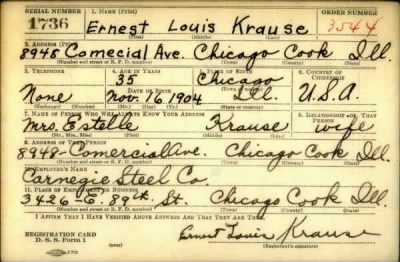 SERIAL NUMBER 1. NAME (Print) ORDER NUMBER
1736 Ernest Louis Krause 3544
2. ADDRESS (Print)
8948 Comecial Ave. Chicago Cook Ill.
(Number and street or R. F. D. number) (Town) (County) (State)
3. TELEPHONE 4. AGE IN YEARS 5. PLACE OF BIRTH 6. COUNTRY OF CITIZENSHIP
35 Chicago
DATE OF BIRTH
None Nov. 16 1904 Ill. U.S.A.
(Exchange) (Number) (Mo.) (Day) (Yr.) (State or country)
7. NAME OF PERSON WHO WILL ALWAYS KNOW YOUR ADDRESS 8. RELATIONSHIP OF THAT PERSON
Mrs Estelle Krause wife
(Mr., Mrs., Miss) (First) (Middle) (Last)
9. ADDRESS OF THAT PERSON
8948-Comercial Ave. Chicago Cook Ill.
(Number and street or R. F. D. number) (Town) (County) (State)
10. EMPLOYER'S NAME
Carnegie Steel Co.
11. PLACE OF EMPLOYMENT OR BUSINESS
3426-E. 89th St. Chicago Cook Ill.
(Number and street or R. F. D. number) (Town) (County) (State)
I AFFIRM THAT I HAVE VERIFIED ABOVE ANSWERS AND THAT THEY ARE TRUE.
REGISTRATION CARD
D. S. S. Form 1
Ernest Louis Krause
(Registrant's signature)